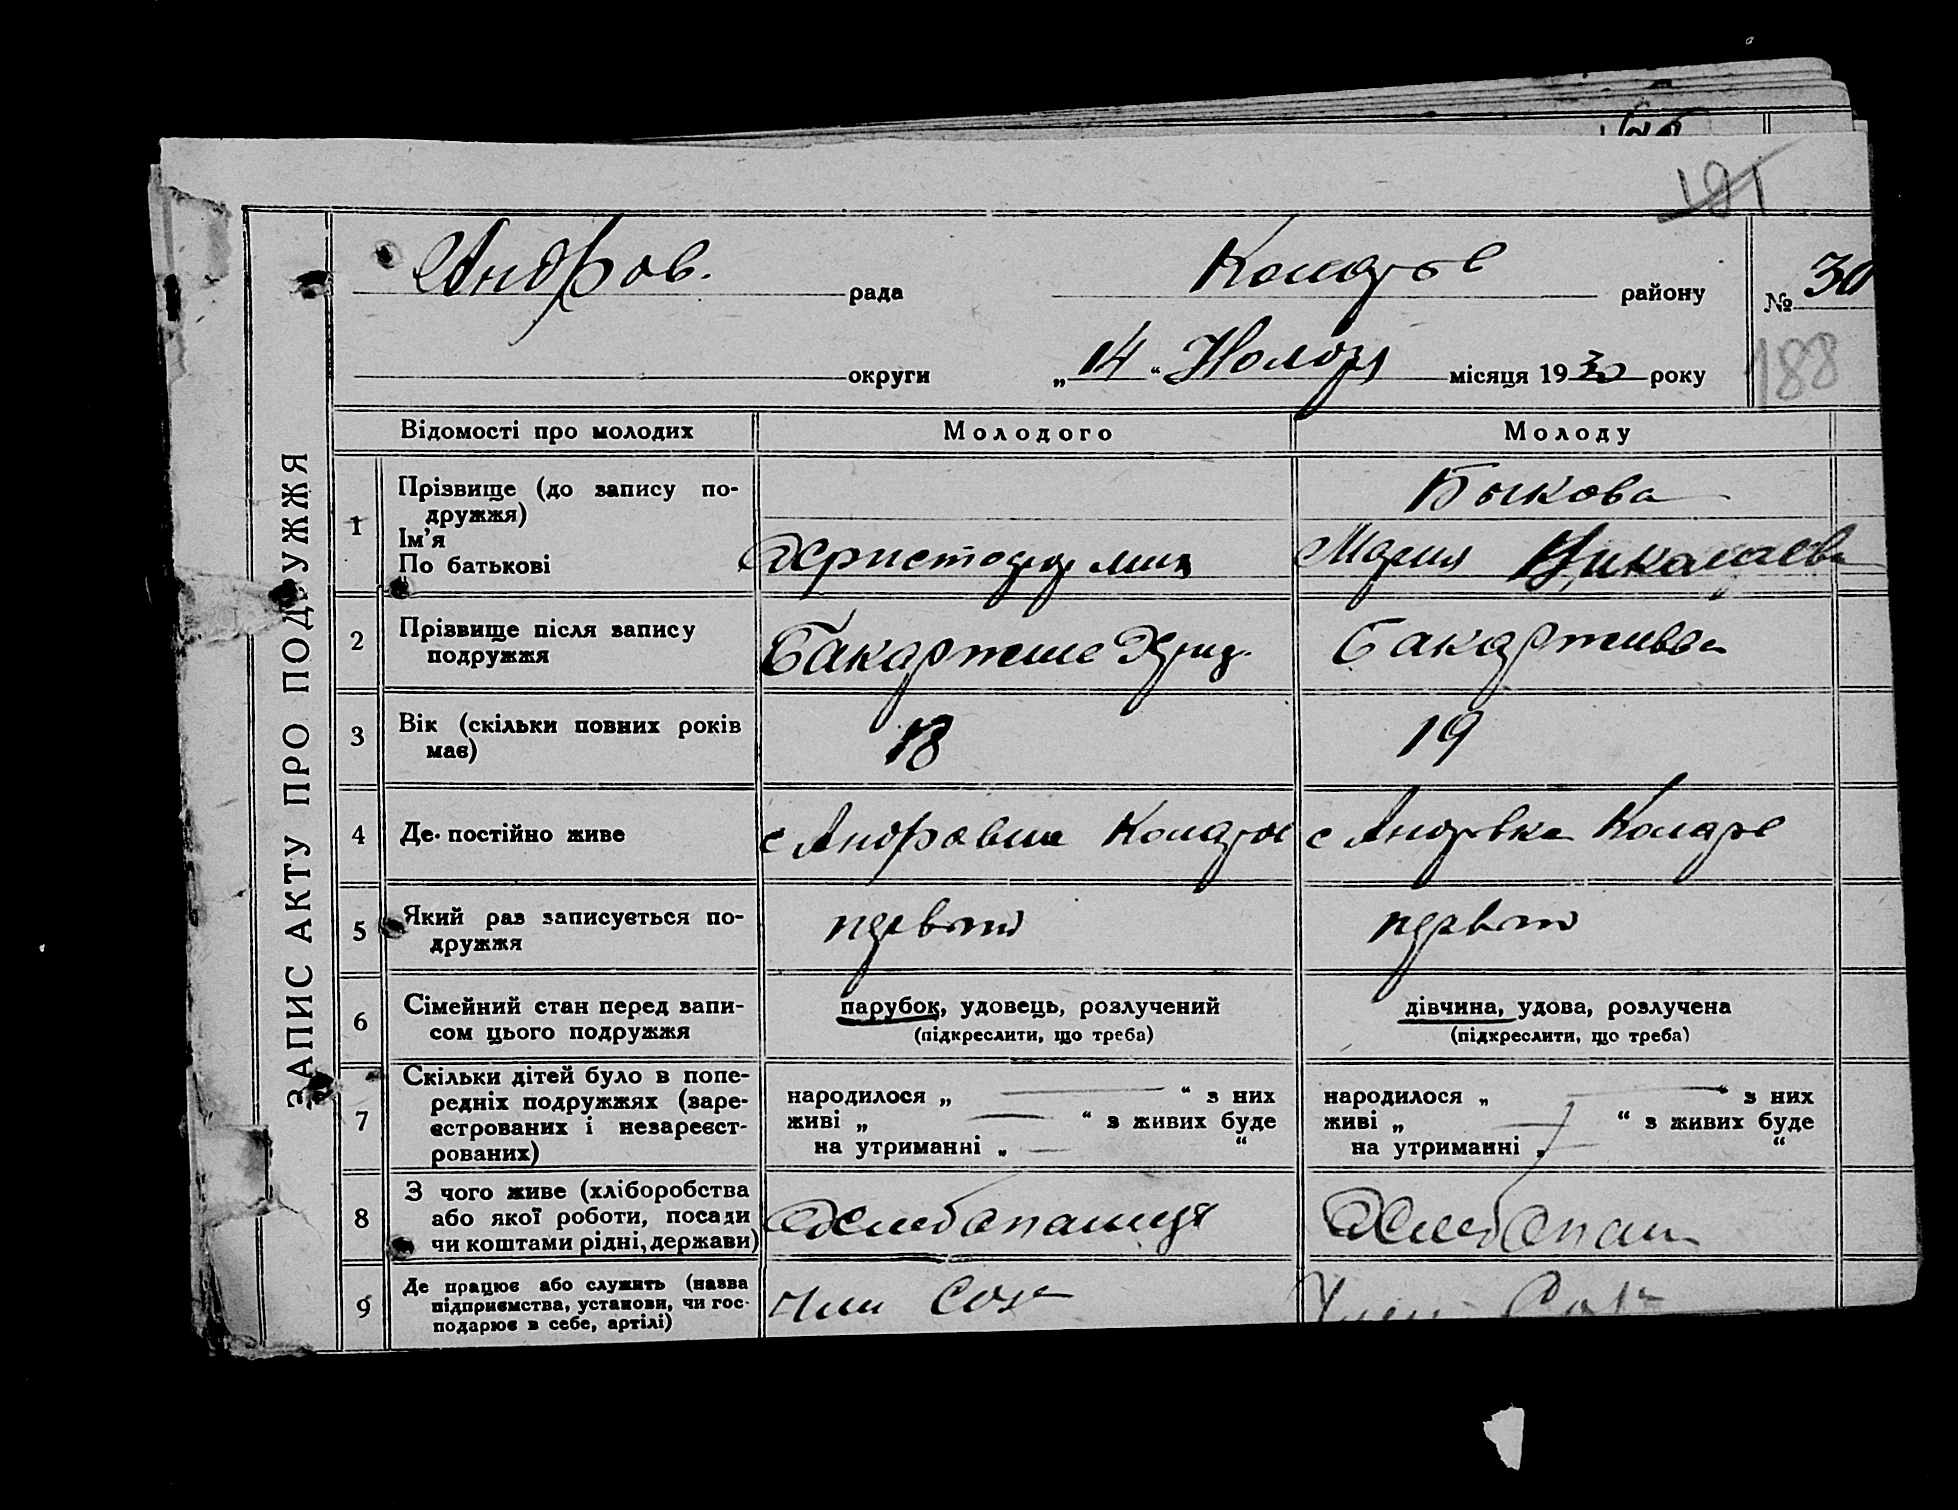 181
Андров. рада Комаров району № 30
округи „ 14 “ Ноября місяця 1930 року
188
ЗАПИС АКТУ ПРО ПОДРУЖЖЯ
Відомості про молодих Молодого Молоду
1 Прізвище (до запису по-
дружжя)
Ім'я
По батькові
Быкова
Мария Николаева
2 Прізвище після запису
подружжя
3 Вік (скільки повних років
має)
18 19
4 Де постійно живе
с Андровка с Андровка
5 Який раз записується по-
дружжя
первый первый
6 Сімейний стан перед запи-
сом цього подружжя
парубок, удовець, розлучений
(підкреслити, що треба)
дівчина, удова, розлучена
(підкреслити, що треба)
7 Скільки дітей було в попе-
редніх подружжях (заре-
єстрованих і незареєст-
рованих)
народилося „ — “ з них
живі „ — “ з живих буде
на утриманні „ — “
народилося „ — “ з них
живі „ — “ з живих буде
на утриманні „ — “
8 З чого живе (хліборобства
або якої роботи, посади
чи коштами рідні, держави)
Хлебопашця Хлебопаш
9 Де працює або служить (назва
підприємства, установи, чи гос-
подарює в себе, артілі)